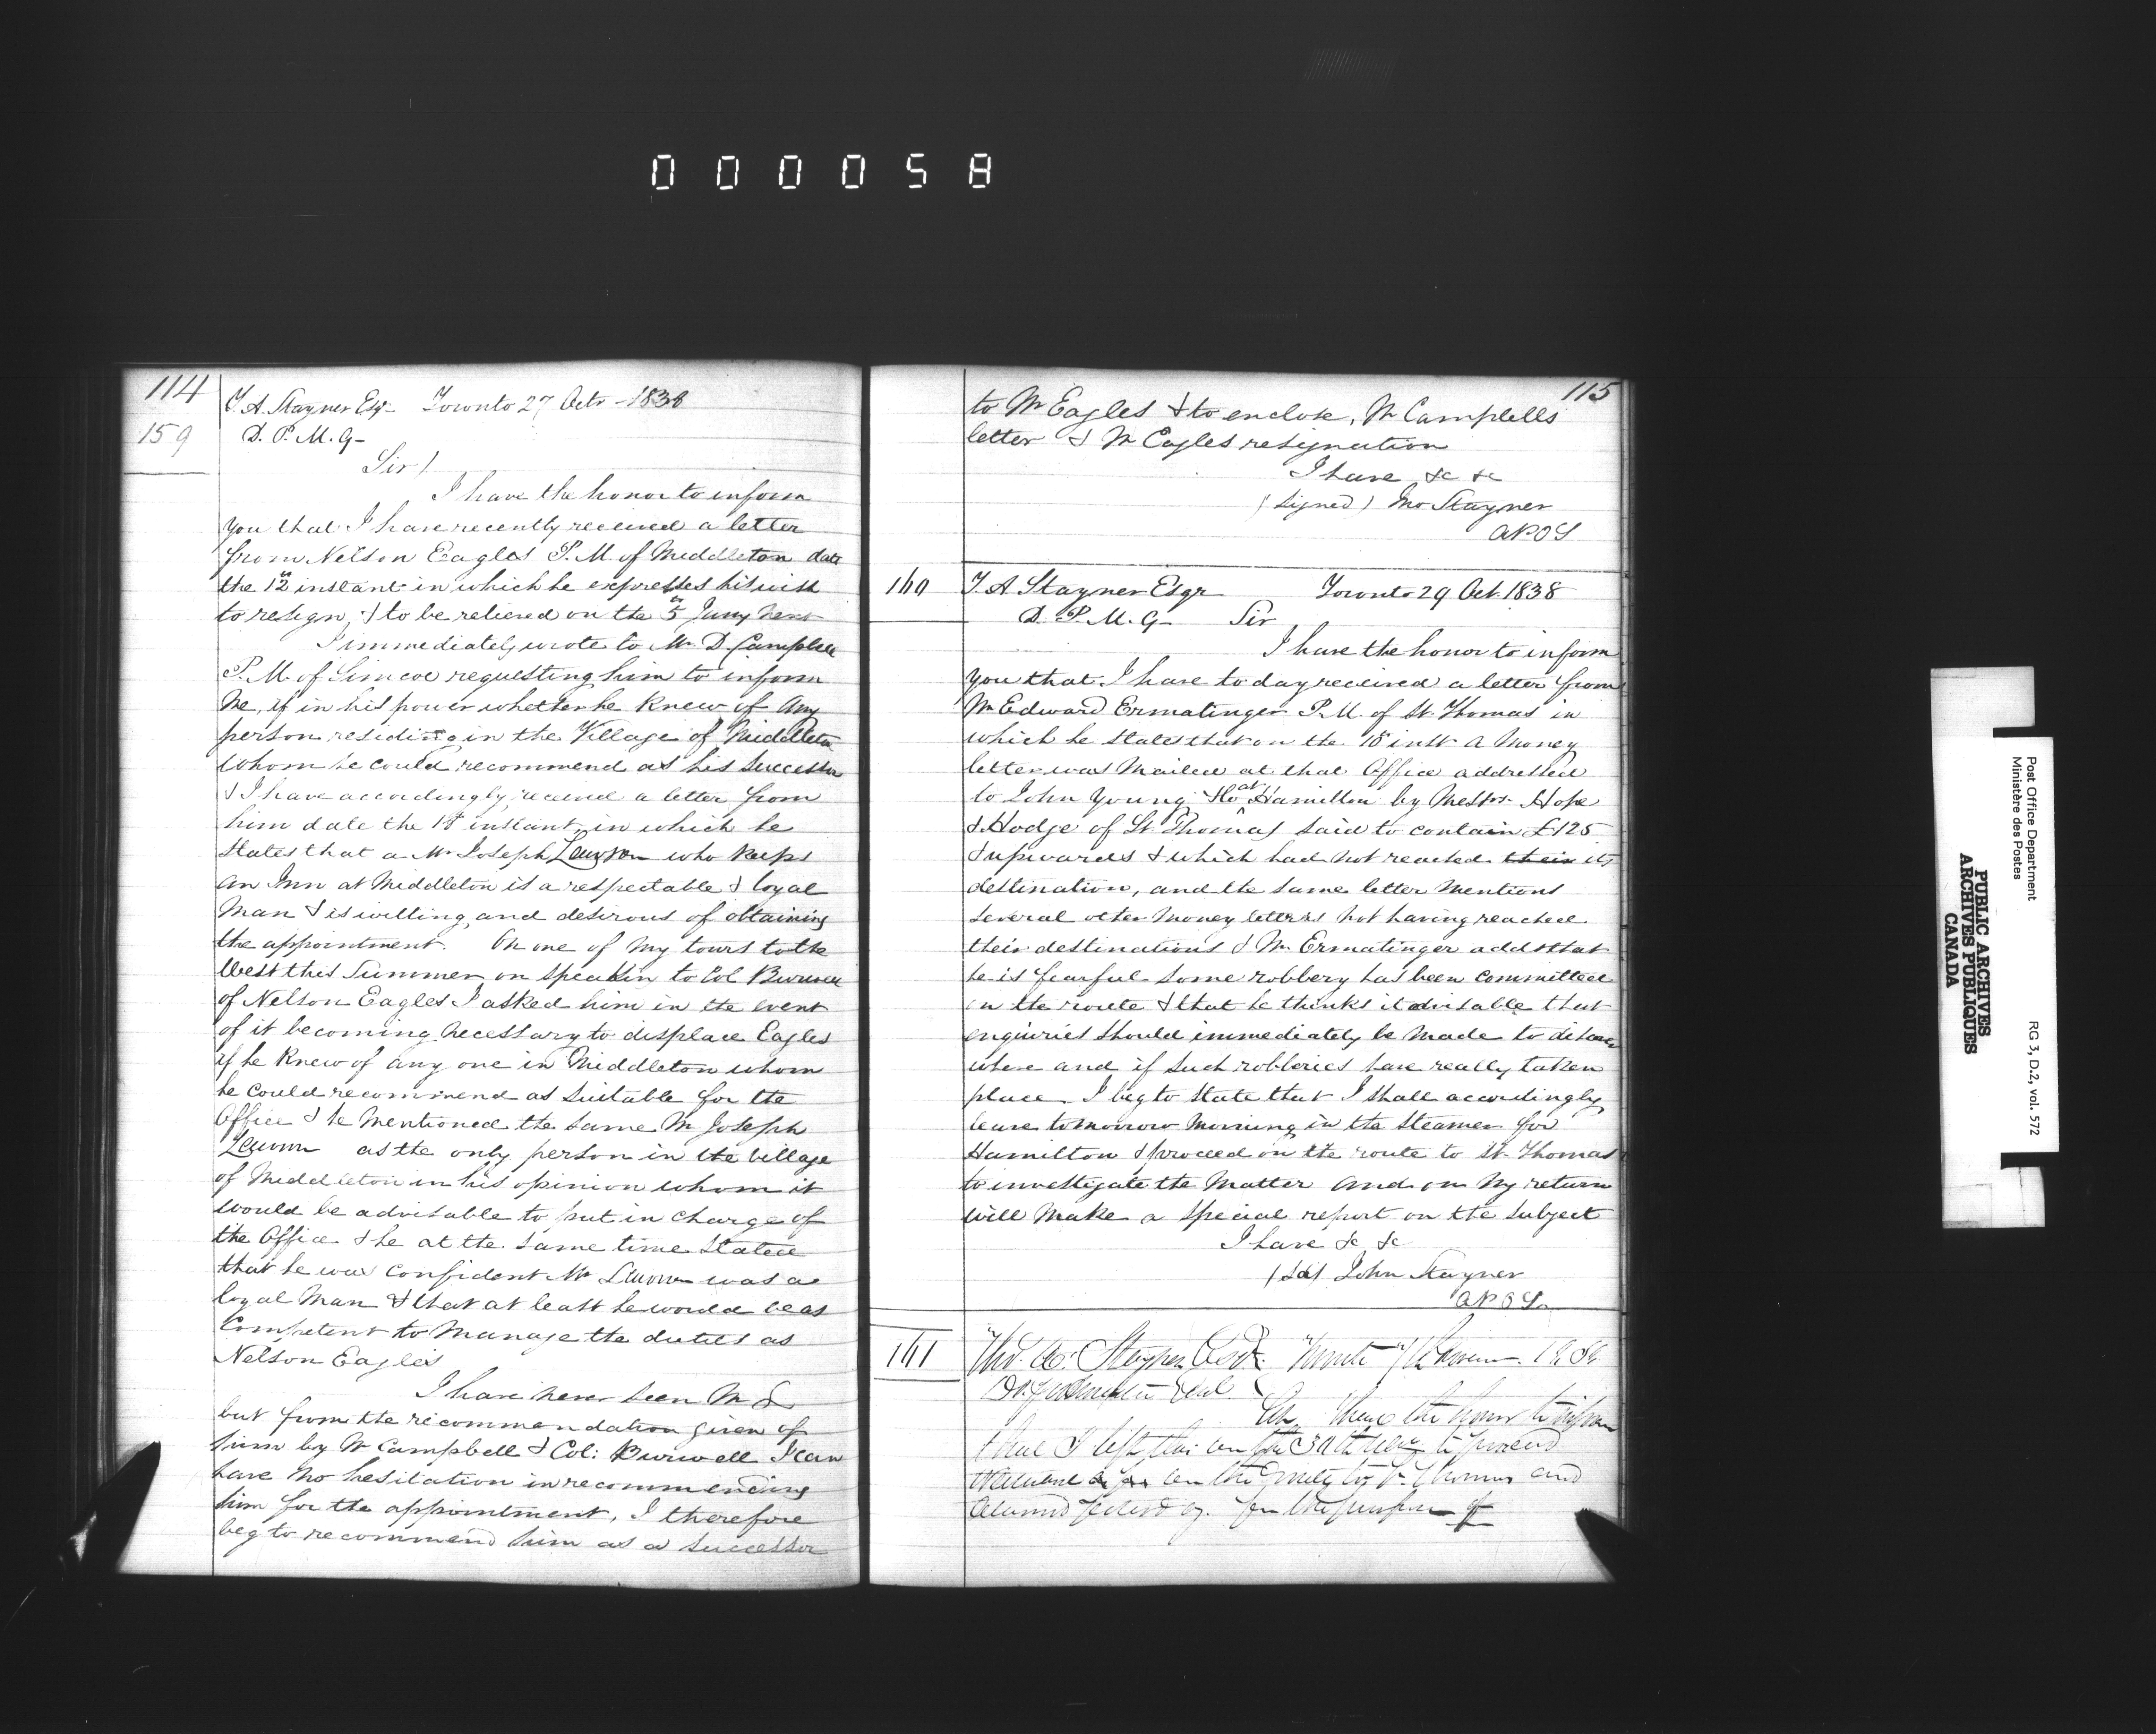 000058
114
159
T. A. Stayner Esqr Toronto 27 Octr 1838
D. P. M. G-
Sir/
I have the honor to inform
you that I have recently received a letter
from Nelson Eagles P.M. of Middleton date
the 12th instant in which he expresses his wish
to resign, & to be relieved on the 5th Jany next
I immediately wrote to Mr D. Campbell
P.M. of Simcoe requesting him to inform
me, if in his power whether he knew of any
person residing in the Village of Middleton
whom he could recommend as his successor
& I have accordingly received a letter from
him date the 18th instant in which he
states that a Mr Joseph Lawson who keeps
an Inn at Middleton is a respectable & loyal
Man & is willing and desirous of obtaining
the appointment. On one of my tours to the
West this Summer on speakin to Col Burwell
of Nelson Eagles I asked him in the event
of it becoming necessary to displace Eagles
if he knew of any one in Middleton whom
he could recommend as suitable for the
Office & he mentioned the same Mr Joseph
as the only person in the village
of Middleton in his opinion whom it
would be advisable to put in charge of
the Office & he at the same time stated
that he was confident Mr was a
loyal Man & that at least he would be as
Competent to manage the duties as
Nelson Eagles
I have never seen Mr L
but from the recommendation given of
him by Mr Campbell & Col: Burwell I can
have no hesitation in recommending
him for the appointment, I therefore
beg to recommend him as a successor
115
to Mr Eagles & to enclose, Mr Campbells
letter & Mr Eagles resignation
I have &c &c
(signed) Jno Stayner
APOS
160
T. A Stayner Esqr Toronto 29 Oct. 1838
D. P. M. G- Sir
I have the honor to inform
you that I have to day received a letter from
Mr Edward Ermatinger P.M. of St Thomas in
which he states that on the 18th inst a Money
letter was Mailed at that Office addressed
to John Young & Co at Hamilton by Messrs Hope
& Hodge of St Thomas said to contain £125
& upwards & which had not reached their its
destination, and the same letter mentions
several other money letters not having reached
their destinations & Mr Ermatinger adds that
he is fearful some robbery has been committed
on the route & that he thinks it advisable that
enquiries should immediately be made to discover
where and if such robberies have really taken
place. I beg to state that I shall accordingly
leave tomorrow morning in the steamer for
Hamilton & proceed on the route to St Thomas
to investigate the matter and on my return
will make a special report on the subject
I have &c &c
(Sd) John Stayner
APOS
161
Thos. A. Stayner Esqr.
Sir I have the honor to inform
that I left this on the 30th to proceed
on the route to St. Thomas and
for the purpose of
Post Office Department
Ministère des Postes
RG 3, D.2, vol. 572
PUBLIC ARCHIVES
ARCHIVES PUBLIQUES
CANADA